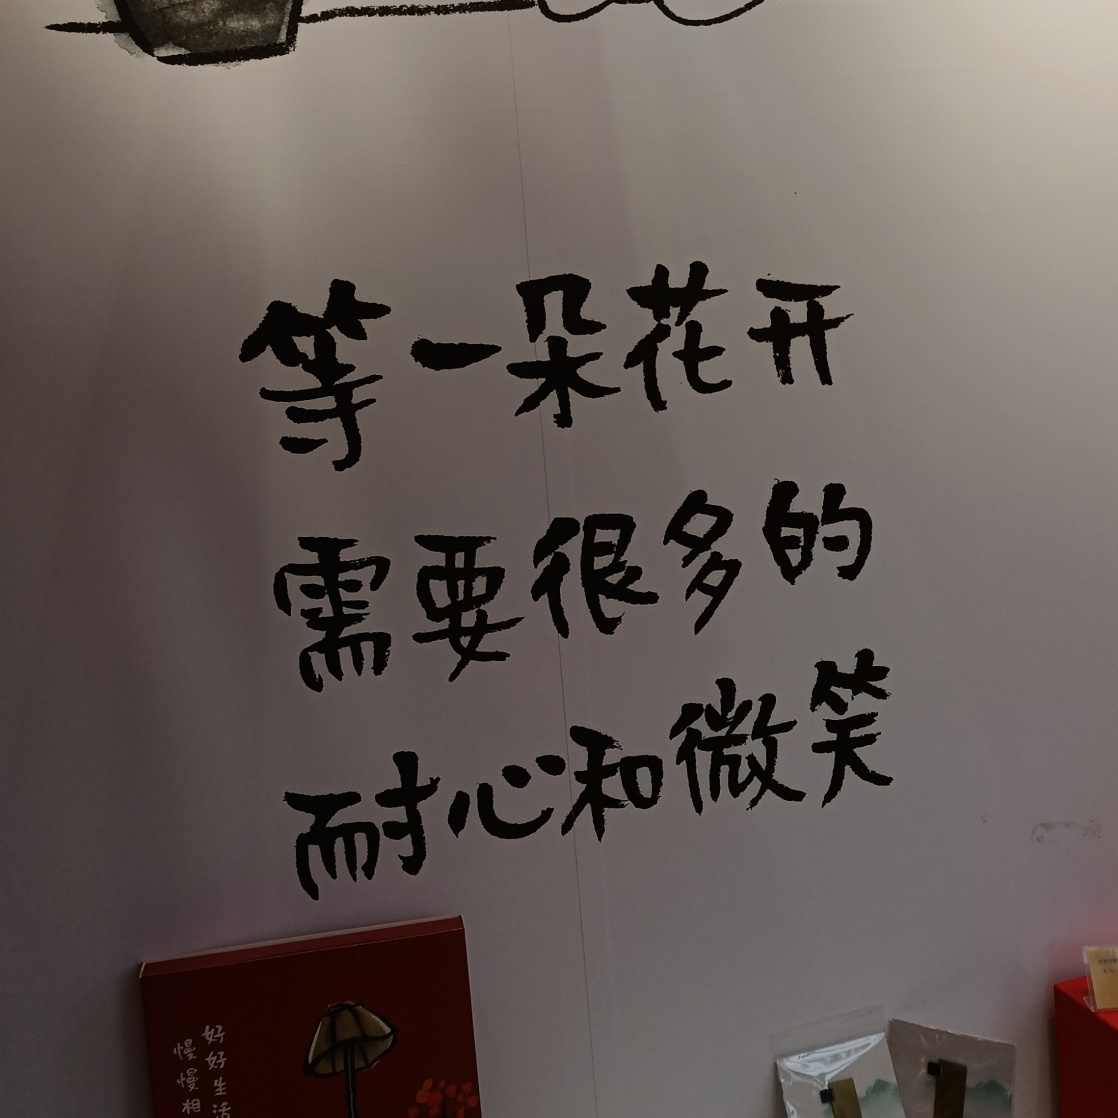 等一朵花开
需要很多的
耐心和微笑
好好生活
慢慢相